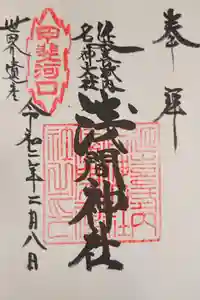 奉拝
延喜式内
名神大社
淺間神社
甲斐河口
世界遺産
令和二年二月八日